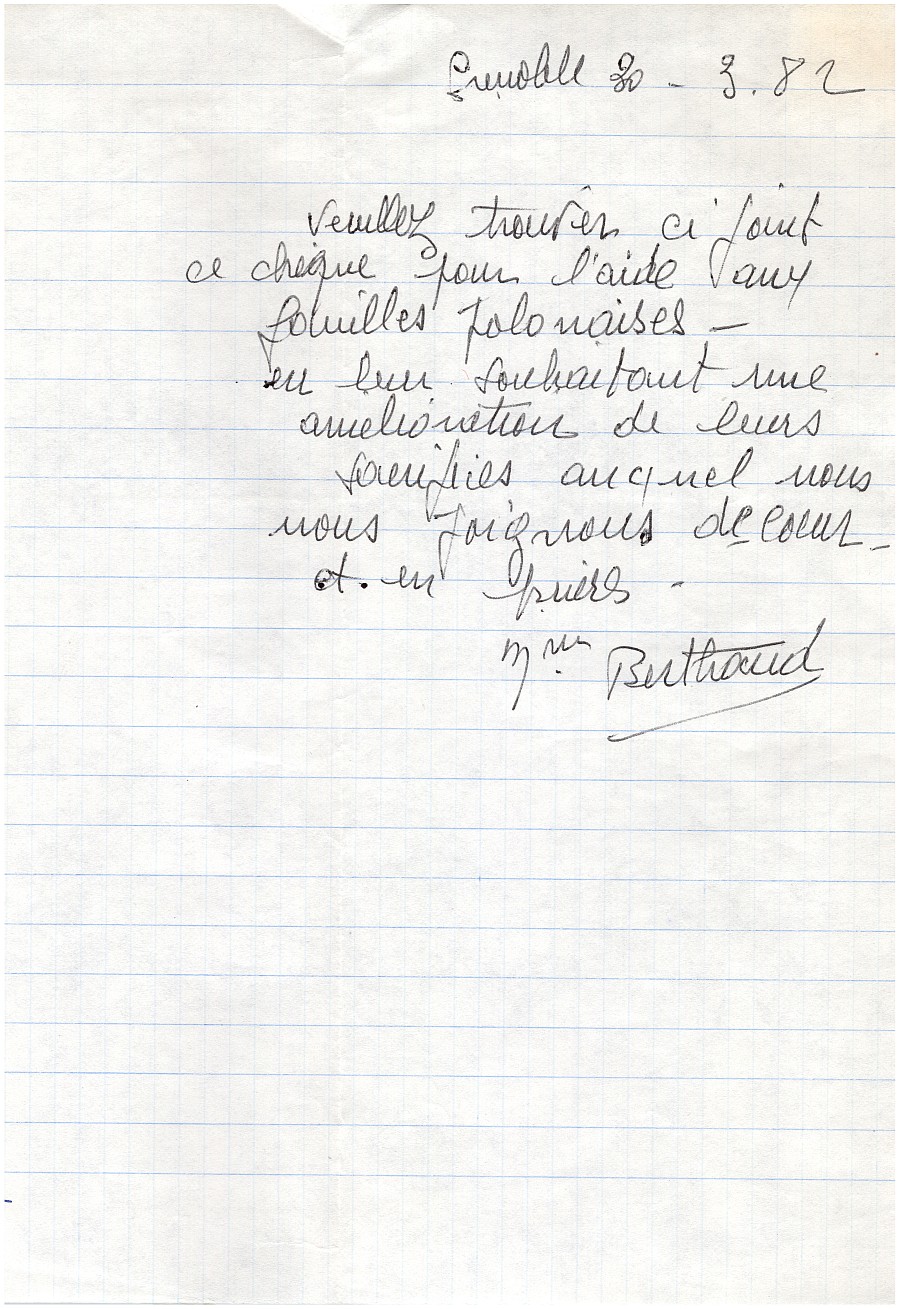 Grenoble 30 - 3. 82
Veuillez trouver ci joint
ce chèque pour l'aide aux
familles polonaises -
en leur souhaitant une
amélioration de leurs
sacrifices auquel nous
nous joignons de coeur -
et. en prières -
Mme Berthaud